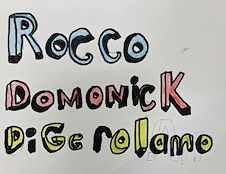 ROCCO
DOMONiCK
DiGeRolamo